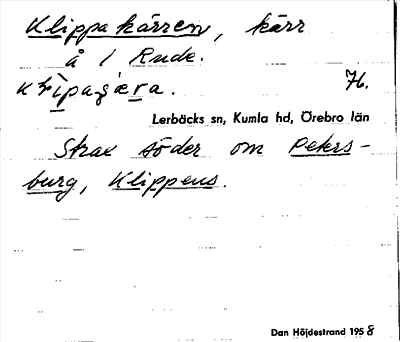 Klippakärren, kärr
å / Rude.
76.
Lerbäcks sn, Kumla hd, Örebro län
Strax söder om Peters-
burg, Klippens.
Dan Höjdestrand 1958